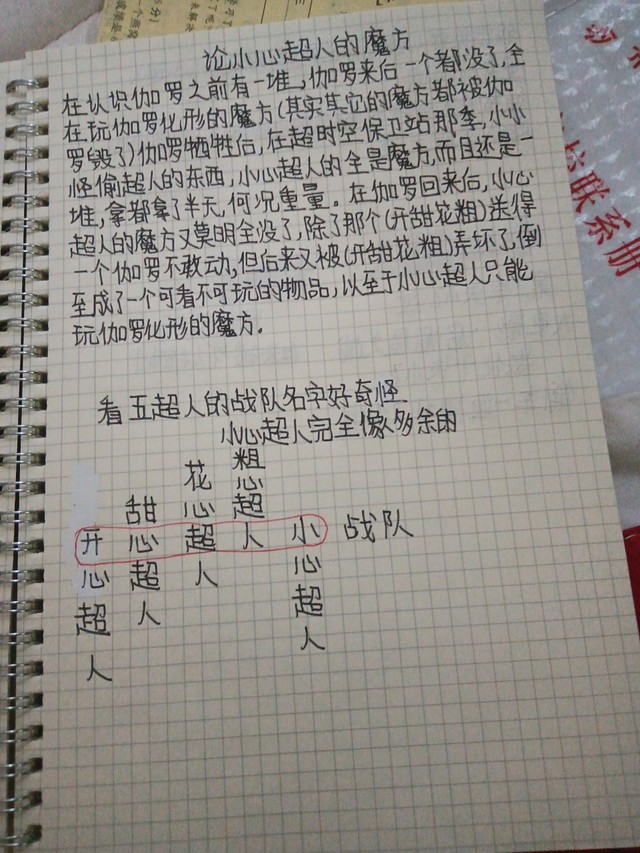 论小心超人的魔方
在认识伽罗之前有一堆,伽罗来后一个都没了,全
在玩伽罗化形的魔方(其实其它的魔方都被伽
罗毁了)伽罗牺牲后,在超时空保卫站那季,小小
怪偷超人的东西,小心超人的全是魔方,而且还是一
堆,拿都拿了半天,何况重量。在伽罗回来后,小心
超人的魔方又莫明全没了,除了那个(开甜花粗)送得
一个伽罗不敢动,但后来又被(开甜花粗)弄坏了,倒
至成了一个可看不可玩的物品,以至于小心超人只能
玩伽罗化形的魔方.
看五超人的战队名字好奇怪
小心超人完全像多余的
开心超人
甜心超人
花心超人
粗心超人
小心超人
战队
联系册